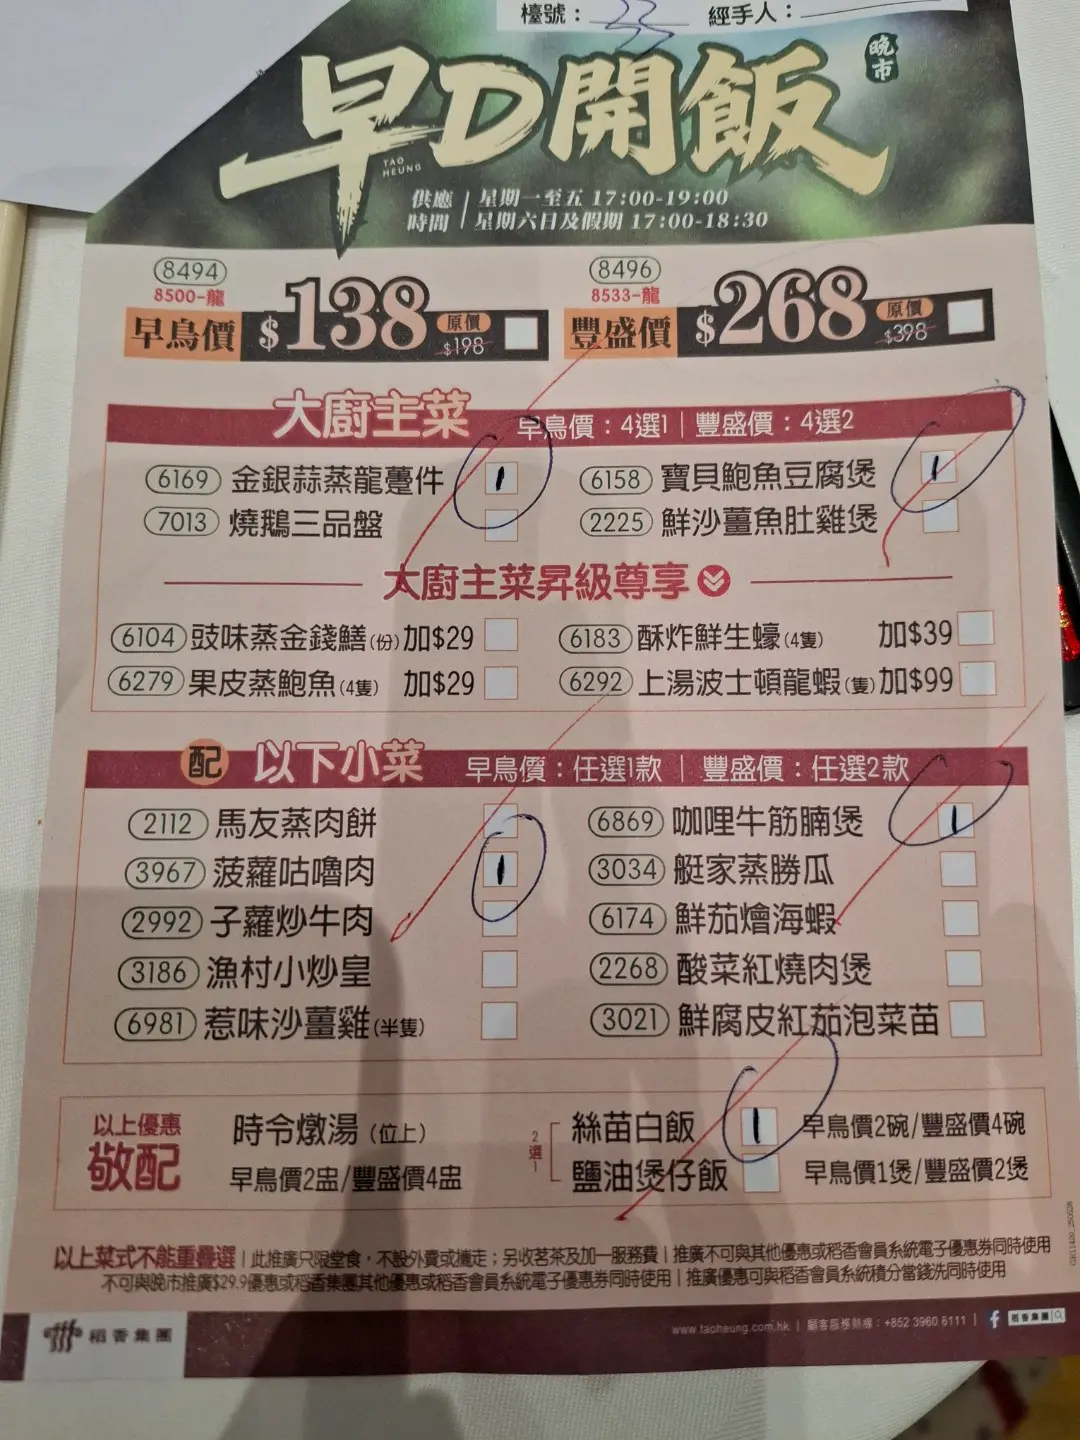 檯號： 33 經手人：
早D開飯 晚市
TAO HEUNG
供應時間 星期一至五 17:00-19:00
星期六日及假期 17:00-18:30
8494
8500-龍
早鳥價 $138 原價 $198
8496
8533-龍
豐盛價 $268 原價 $398
大廚主菜 早鳥價：4選1 | 豐盛價：4選2
6169 金銀蒜蒸龍躉件 1 6158 寶貝鮑魚豆腐煲 1
7013 燒鵝三品盤 2225 鮮沙薑魚肚雞煲
大廚主菜昇級尊享
6104 豉味蒸金錢鱔(份) 加$29 6183 酥炸鮮生蠔(4隻) 加$39
6279 果皮蒸鮑魚(4隻) 加$29 6292 上湯波士頓龍蝦(隻) 加$99
配 以下小菜 早鳥價：任選1款 | 豐盛價：任選2款
2112 馬友蒸肉餅 6869 咖哩牛筋腩煲 1
3967 菠蘿咕嚕肉 1 3034 艇家蒸勝瓜
2992 子蘿炒牛肉 6174 鮮茄燴海蝦
3186 漁村小炒皇 2268 酸菜紅燒肉煲
6981 惹味沙薑雞(半隻) 3021 鮮腐皮紅茄泡菜苗
以上優惠 敬配
時令燉湯(位上)
早鳥價2盅/豐盛價4盅
2選1
絲苗白飯 1 早鳥價2碗/豐盛價4碗
鹽油煲仔飯 早鳥價1煲/豐盛價2煲
以上菜式不能重疊選 | 此推廣只限堂食，不設外賣或攜走；另收茗茶及加一服務費 | 推廣不可與其他優惠或稻香會員系統電子優惠券同時使用
不可與晚市推廣$29.9優惠或稻香集團其他優惠或稻香會員系統電子優惠券同時使用 | 推廣優惠可與稻香會員系統積分當錢洗同時使用
稻香集團
www.taoheung.com.hk | 顧客服務熱線：+852 3960 6111 | f 稻香集團